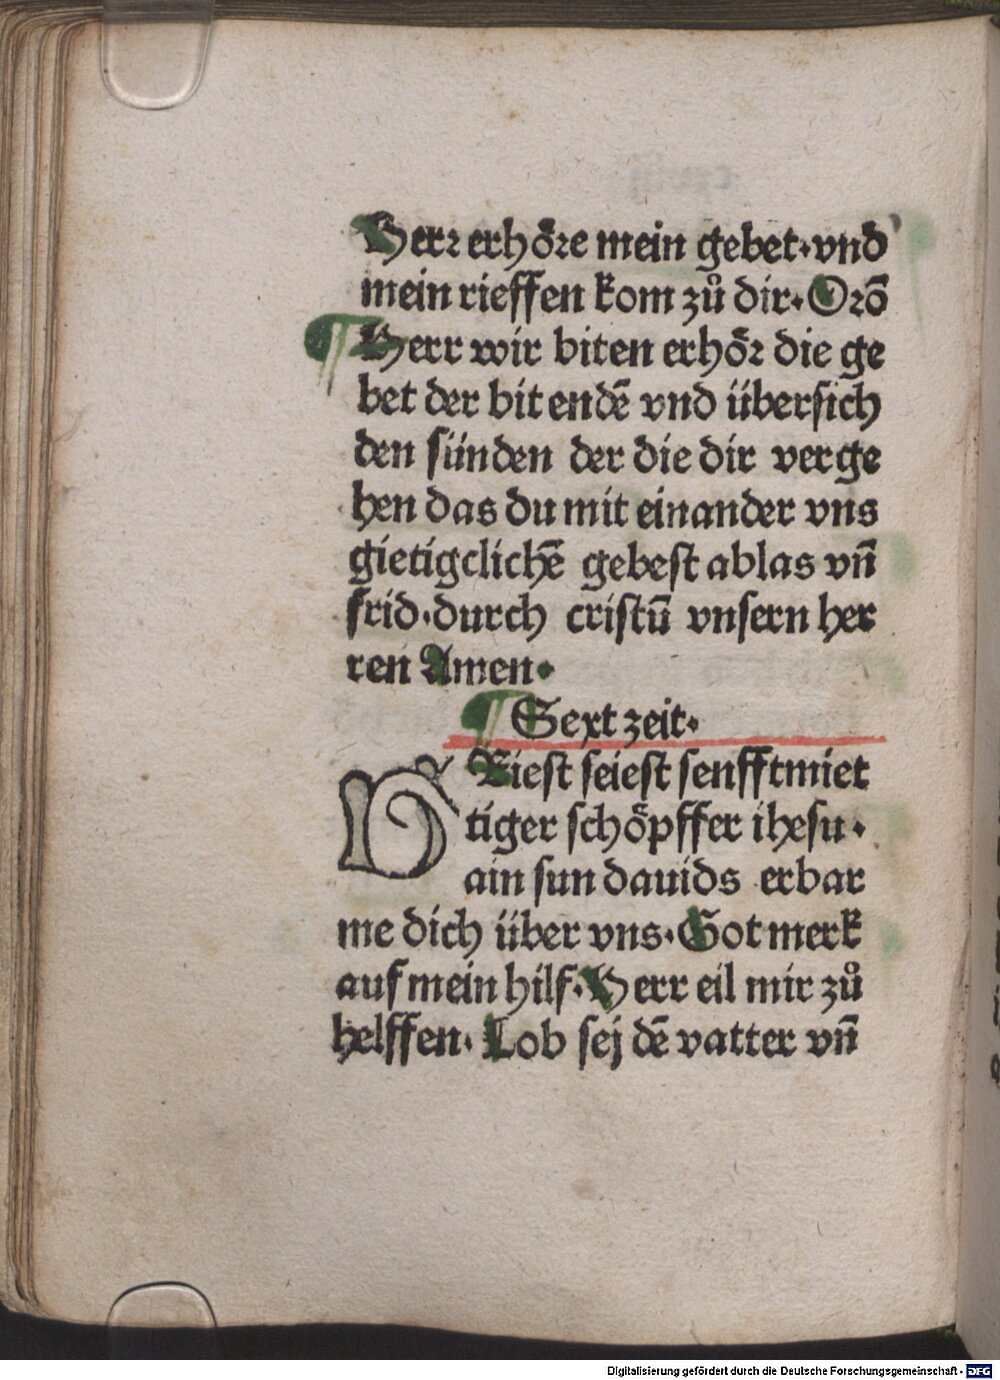 Herr erhöre mein gebet·vnd
mein rieffen kom zů dir·Orō
¶ Herr wir biten erhör die ge
bet der bit endē vnd übersich
den sünden der die dir verge
hen das du mit einander vns
gietigclichē gebest ablas vn̄
frid·durch cristū vnsern her
ren Amen·
¶ Sext zeit·
GRiest seiest senfftmiet
tiger schöpffer ihesu·
ain sun dauids erbar
me dich über vns·Got merk
auf mein hilf·Herr eil mir zů
helffen·Lob sej dē vatter vn̄
Digitalisierung gefördert durch die Deutsche Forschungsgemeinschaft - DFG